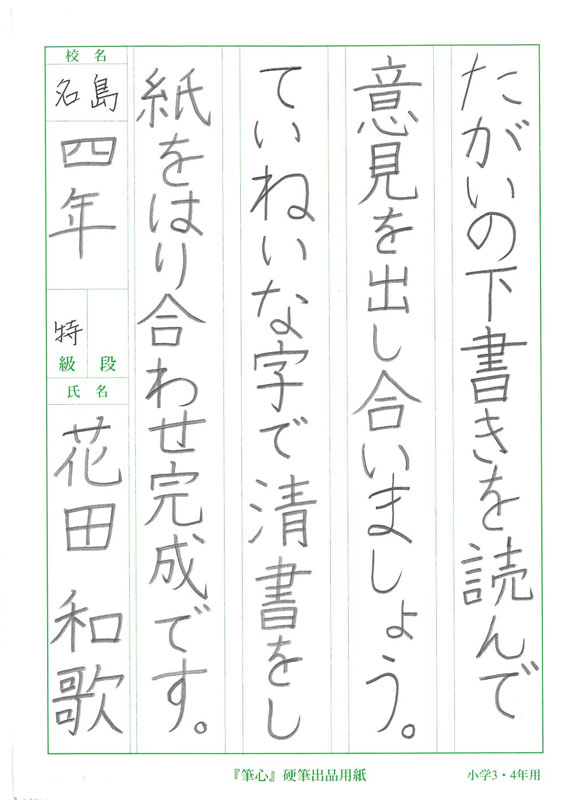 たがいの下書きを読んで
意見を出し合いましょう。
ていねいな字で清書をし
紙をはり合わせ完成です。
校名
名島
四年
特
級 段
氏名
花田 和歌
『筆心』硬筆出品用紙
小学3・4年用